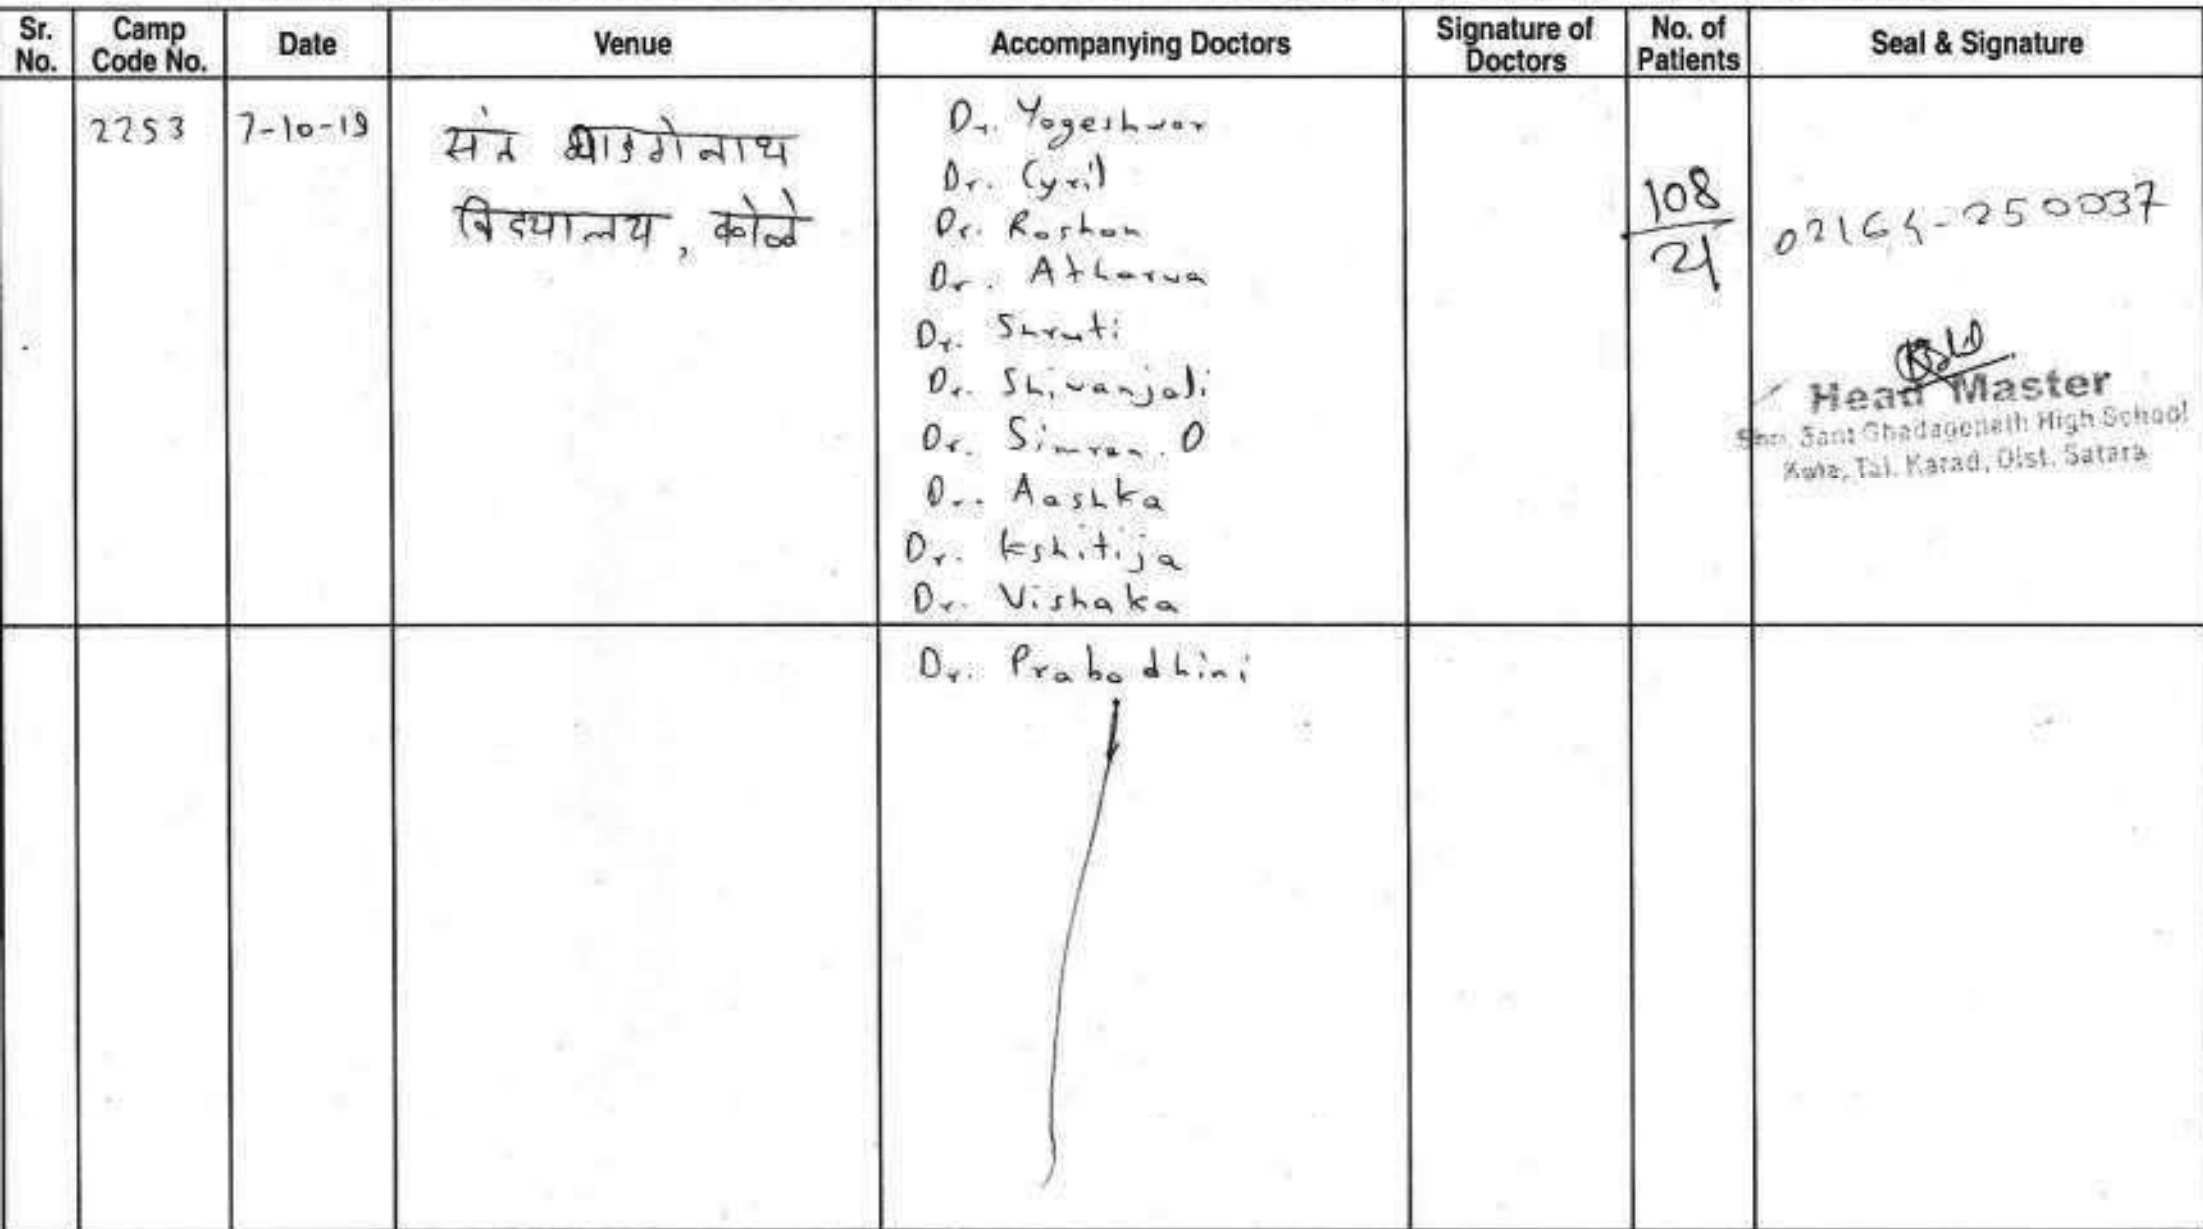 Sr. No. Camp Code No. Date Venue Accompanying Doctors Signature of Doctors No. of Patients Seal & Signature
2253 7-10-19 संत घाडगेनाथ विद्यालय, कोळे
Dr. Yogeshwar
Dr. Cyril
Dr. Roshan
Dr. Atharva
Dr. Shruti
Dr. Shivanjali
Dr. Simran. D
Dr. Aashka
Dr. Kshitija
Dr. Vishaka
108
21
02164-250037
Head Master
Shri Sant Ghadagenath High School
Kole, Tal. Karad, Dist. Satara
Dr. Prabodhini